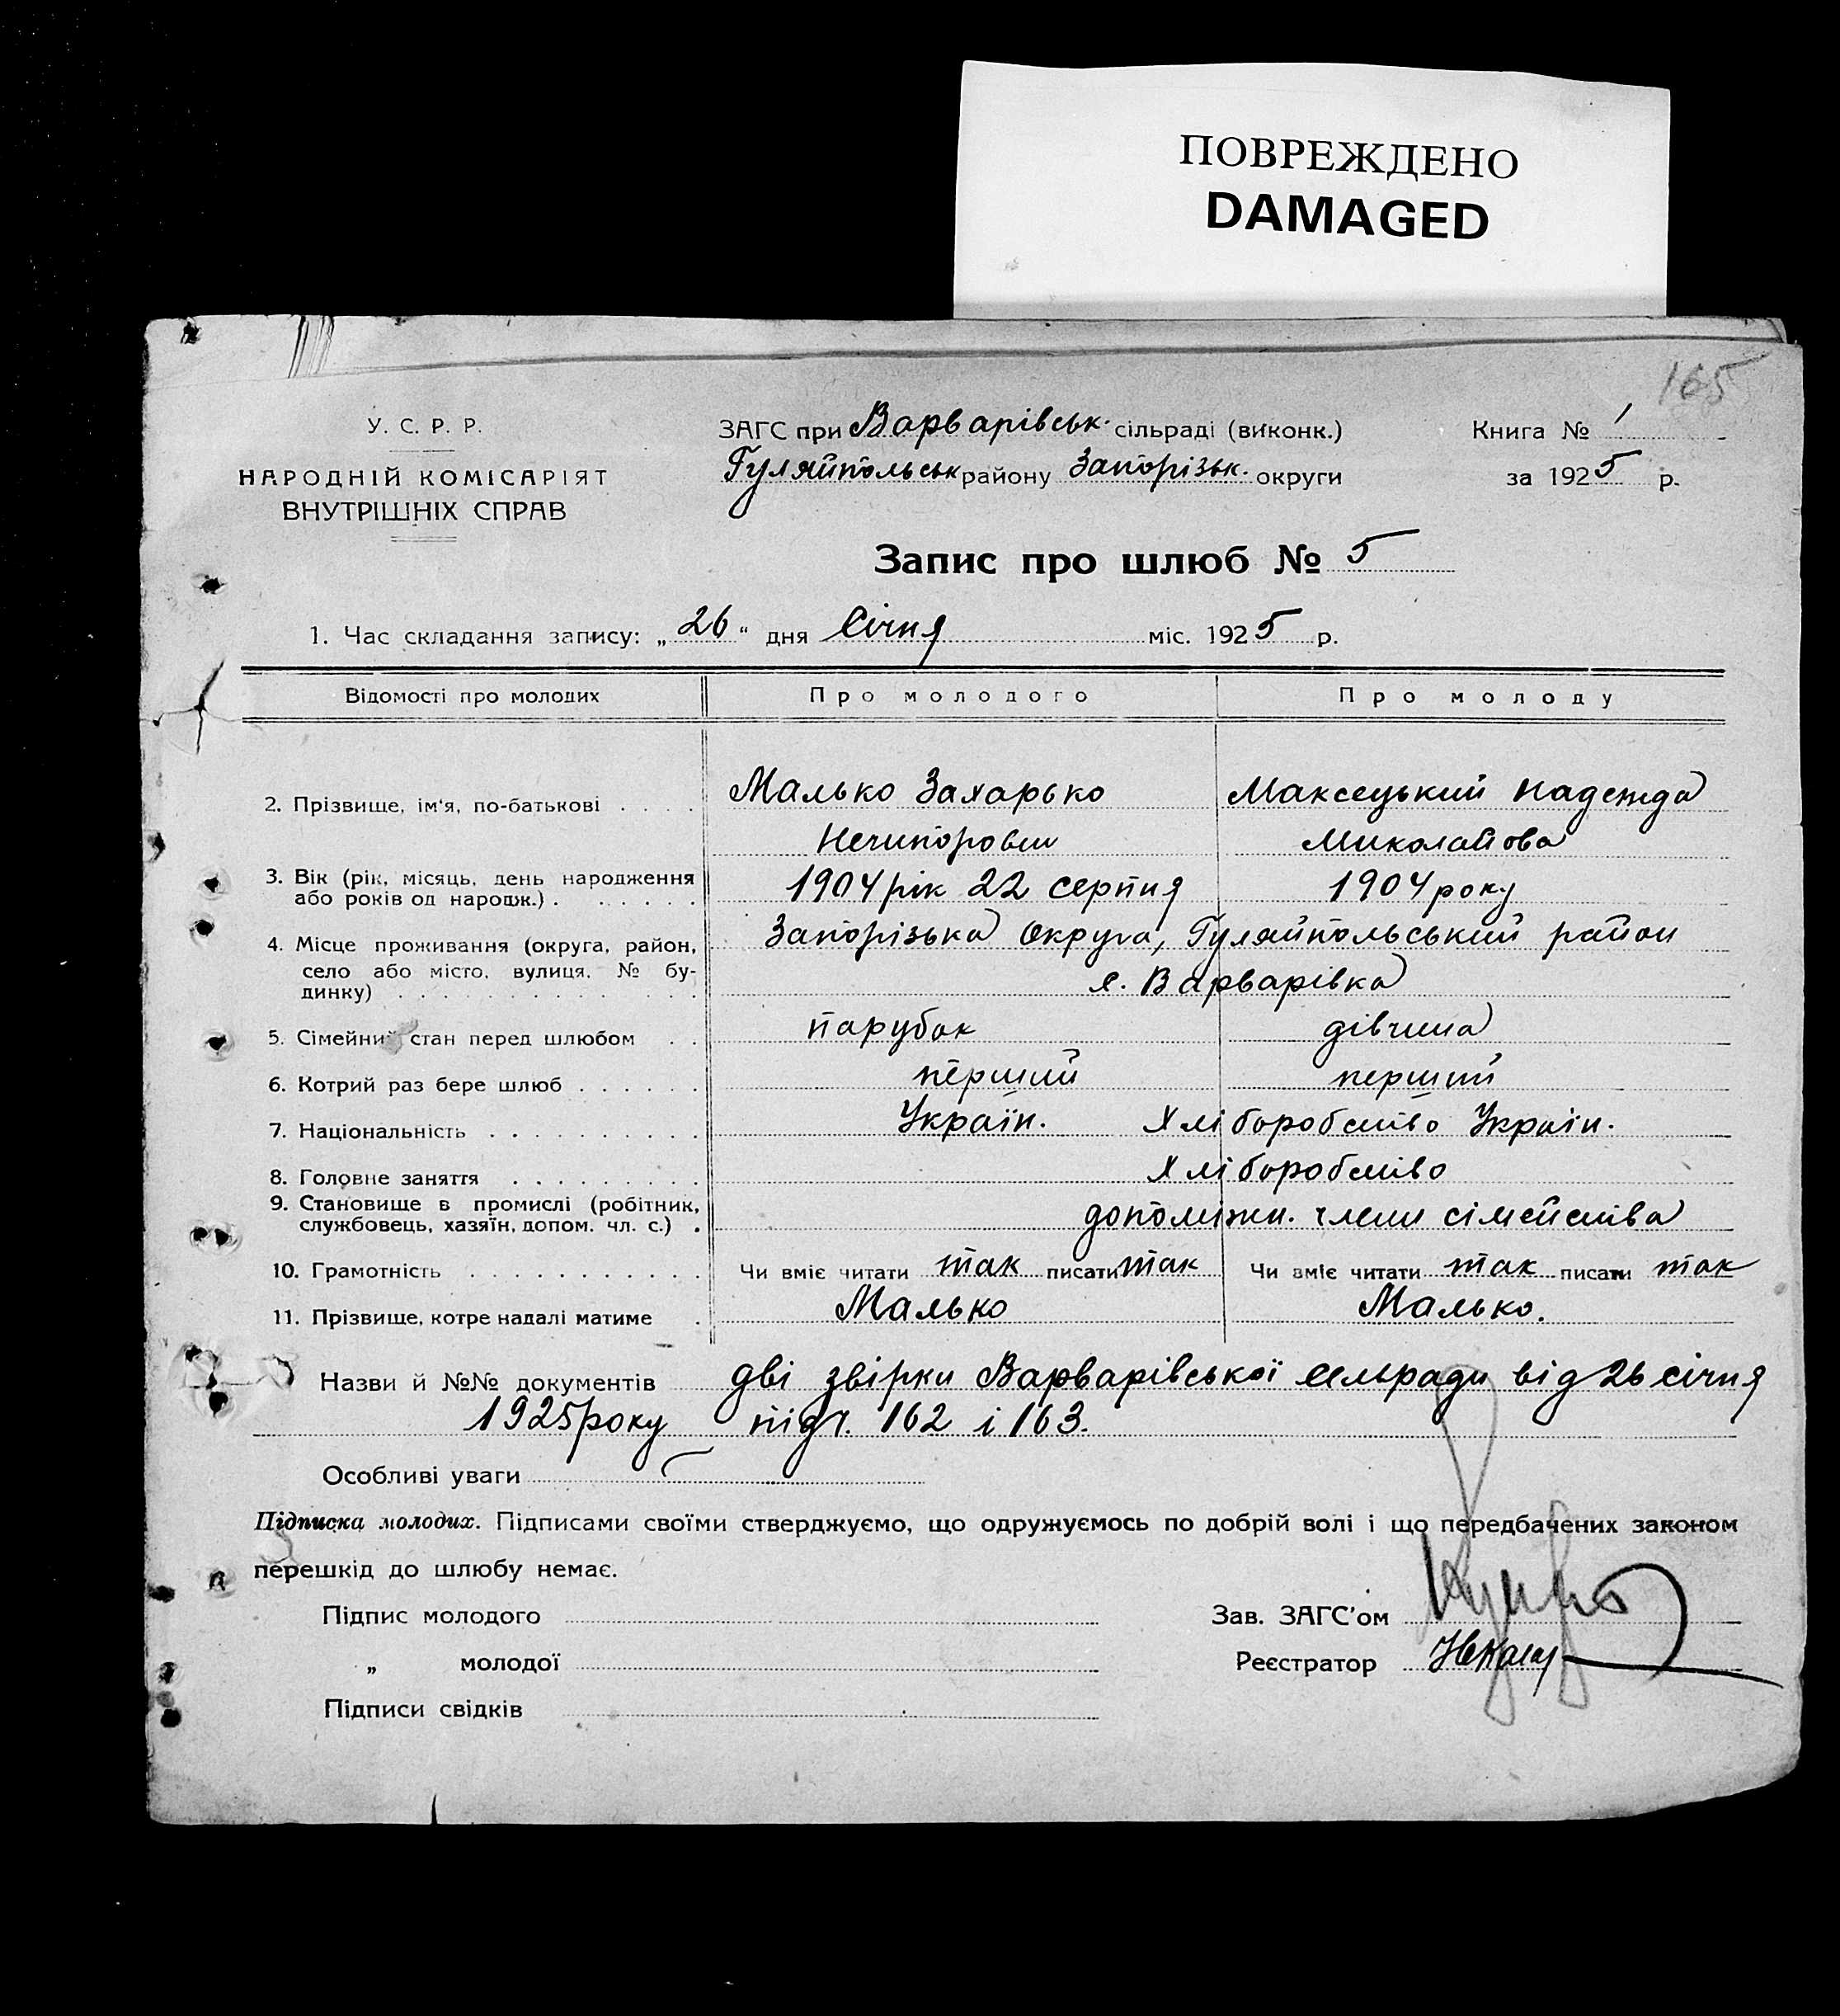 ПОВРЕЖДЕНО
DAMAGED
165
У. С. Р. Р.
НАРОДНІЙ КОМІСАРІЯТ
ВНУТРІШНІХ СПРАВ
ЗАГС при Варварівськ. сільраді (виконк.)
Гуляйпольськ району Запорізьк. округи
Книга № 1
за 1925 р.
Запис про шлюб № 5
1. Час складання запису: „26“ дня Січня міс. 1925 р.
Відомості про молодих Про молодого Про молоду
2. Прізвище, ім'я, по-батькові . . . . Малько Захарько Максецький Надежда
Нечипорови Миколайова
3. Вік (рік, місяць, день народження або років од народж.) . . . . . . 1904 рік 22 серпня 1904 року
4. Місце проживання (округа, район, село або місто, вулиця, № будинку) . . . Запорізька Округа, Гуляйпольський район
с. Варварівка
5. Сімейний стан перед шлюбом . . парубок дівчина
6. Котрий раз бере шлюб . . . . . . перший перший
7. Національність . . . . . . . . . . Україн. Хліборобство Україн.
8. Головне заняття . . . . . . . . . Хліборобство
9. Становище в промислі (робітник, службовець, хазяїн, допом. чл. с.) . допоможн. члени сімейства
10. Грамотність . . . . . . . . . . . Чи вміє читати так писати так Чи вміє читати так писати так
11. Прізвище, котре надалі матиме . Малько Малько.
Назви й №№ документів дві звірки Варварівської сельради від 26 січня
1925 року під ч. 162 і 163.
Особливі уваги
Підписка молодих. Підписами своїми стверджуємо, що одружуємось по добрій волі і що передбачених законом
перешкід до шлюбу немає.
Підпис молодого Зав. ЗАГС'ом
„ молодої Реєстратор
Підписи свідків